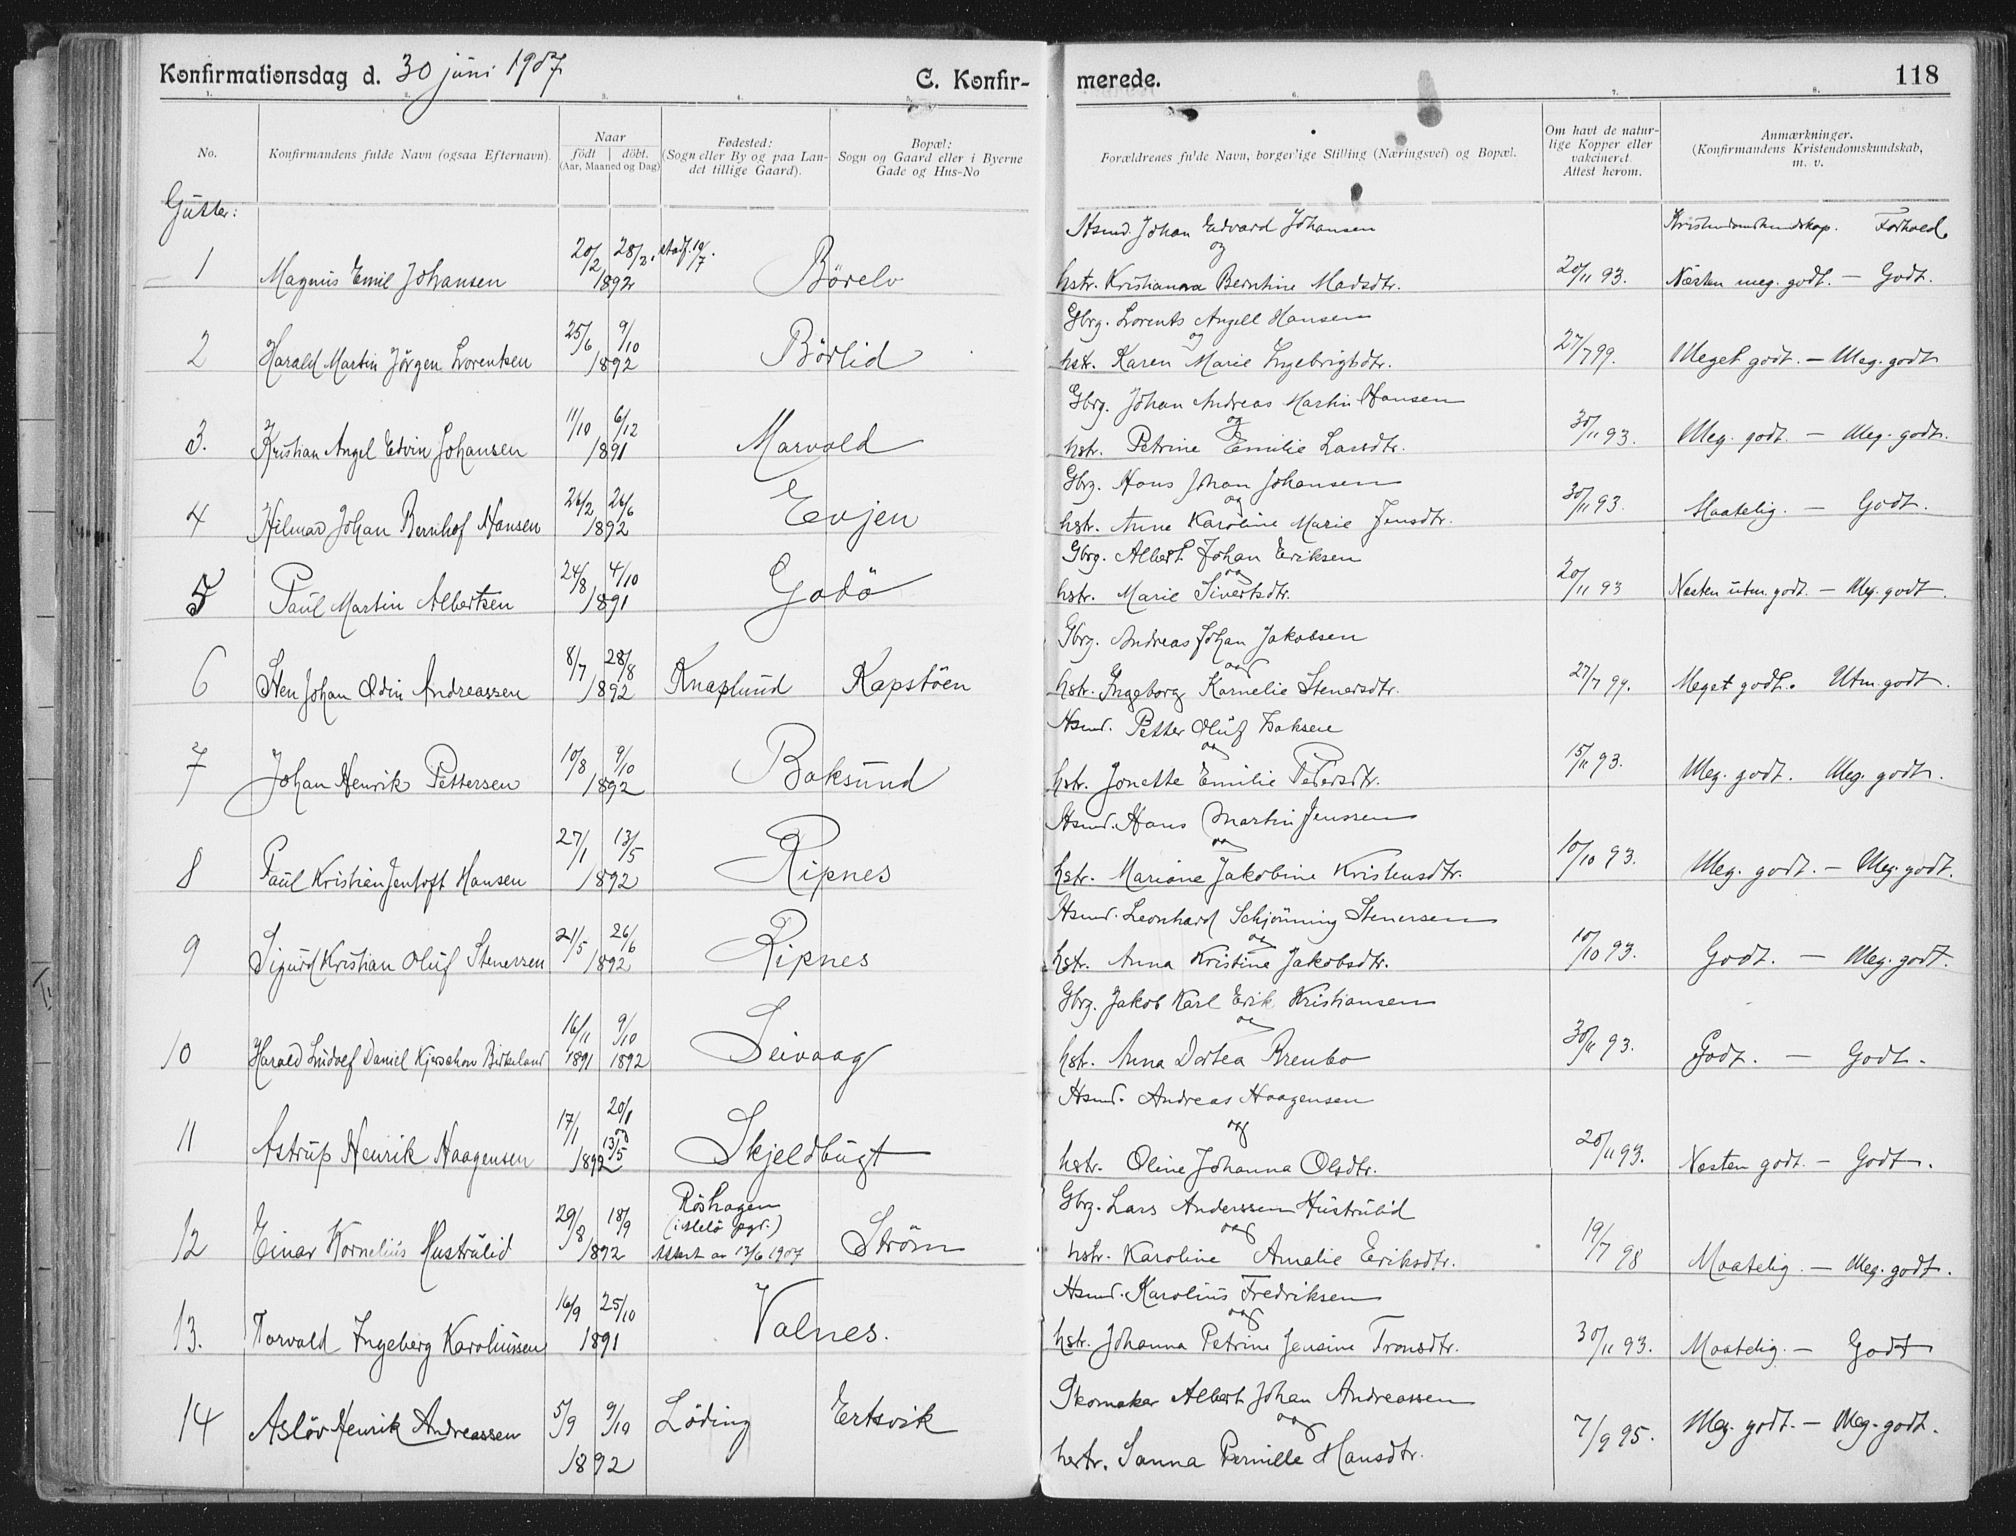 Konfirmationsdag d. 30 juni 1907 C. Konfir- merede. 118
1. 2. 3. 4. 5. 6. 7. 8.
No. Konfirmandens fulde Navn (ogsaa Efternavn).
Naar født | døbt. (Aar, Maaned og Dag)
Fødested: (Sogn eller By og paa Lan- det tillige Gaard).
Bopæl: Sogn og Gaard eller i Byerne Gade og Hus-No
Forældrenes fulde Navn, borgerlige Stilling (Næringsvei) og Bopæl.
Om havt de natur- lige Kopper eller vakcineret. Attest herom.
Anmærkninger. (Konfirmandens Kristendomskundskab, m. v.
Gutter:
Kristendomskundskap. Forhold
Hsmd. Johan Edvard Johansen
og
1 Magnus Emil Johansen 20/2 28/3. stadf. 10/7. 1892 Börelv hstr. Kristianna Berntine Madsdtr. 20/11 93. Næsten meg. godt. — Godt.
Gbrg. Lorents Angell Hansen
og
2 Harald Martin Jörgen Lorentsen 25/6 9/10 1892 Börlid hstr. Karen Marie Ingebrigtsdtr. 27/7 99. Meget godt. — Meg. godt
Gbrg. Johan Andreas Martin Hansen
og
3. Kristian Angel Edvin Johansen 11/10 6/12 1891 Marvold hstr. Petrine Emilie Larsdtr. 30/11 93. Meg. godt. — Meg. godt.
Gbrg. Hans Johan Johansen
og
4 Hilmar Johan Bernhof Hansen 26/2 26/6 1892 Evjen hstr. Anne Karoline Marie Jensdtr. 30/11 93. Maatelig. — Godt.
Gbrg. Albert Johan Eriksen
og
5 Paul Martin Albertsen 24/8 4/10 1891 Godö hstr. Marie Sivertsdtr. 20/11 93 Næsten utm. godt. — Meg. godt.
Gbrg. Andreas Johan Jakobsen
og
6 Sten Johan Odin Andreassen 8/7 28/8 1892 Knaplund Kapstöen hstr. Ingeborg Kornelie Stenersdtr. 27/7 99. Meget godt. Utm. godt.
Hsmd. Petter Oluf Isaksen
og
7 Johan Henrik Pettersen 10/8 9/10 1892 Boksund hstr. Jonette Emilie Pedersdtr. 15/11 93. Meg. godt. Meg. godt.
Hsmd. Hans Martin Jenssen
og
8 Paul Kristian Jentoft Hansen 27/1 13/5 1892 Ripnes hstr. Marione Jakobine Kristensdtr. 10/10 93. Meg. godt. — Meg. godt.
Hsmd. Leonhard Schjönning Stenersen
og
9 Sigurd Kristian Oluf Stenersen 21/5 26/6 1892 Ripnes hstr. Anna Kristine Jakobsdtr. 10/10 93. Godt. — Meg. godt.
Gbrg. Jakob Karl Erik Kristiansen
og
10 Harald Ludolf Daniel Kjerschow Birkeland 16/11 1891 9/10 1892 Seivaag hstr. Anna Dortea Brenbo 30/11 93. Godt. — Godt.
Hsmd. Andreas Haagensen
og
11 Astrup Henrik Haagensen 17/1 20/1 og 13/5 1892 Skjeldbugt hstr. Oline Johanna Olsdtr. 20/11 93. Næsten godt. — Godt.
Gbrg. Lars Anderssen Hustrulid
og
12 Einar Kornelius Hustrulid 29/8 18/9 1892 Röshagen (i Melö pgr.) Attest av 13/6 1907 Ström hstr. Karoline Amalie Eriksdtr. 19/7 98 Maatelig. — Meg. godt.
Hsmd. Karolius Fredriksen
og
13. Torvald Ingeberg Karoliussen 16/9 25/10 1891 Valnes. hstr. Johanna Petrine Jensine Tronsdtr. 30/11 93. Maatelig. — Godt
Skomaker Albert Johan Andreassen
og
14 Aslöv Henrik Andreassen 5/9 9/10 1892 Löding Ertsvik hstr. Sanna Pernille Hansdtr. 7/9 95. Meg. godt. — Meg. godt.